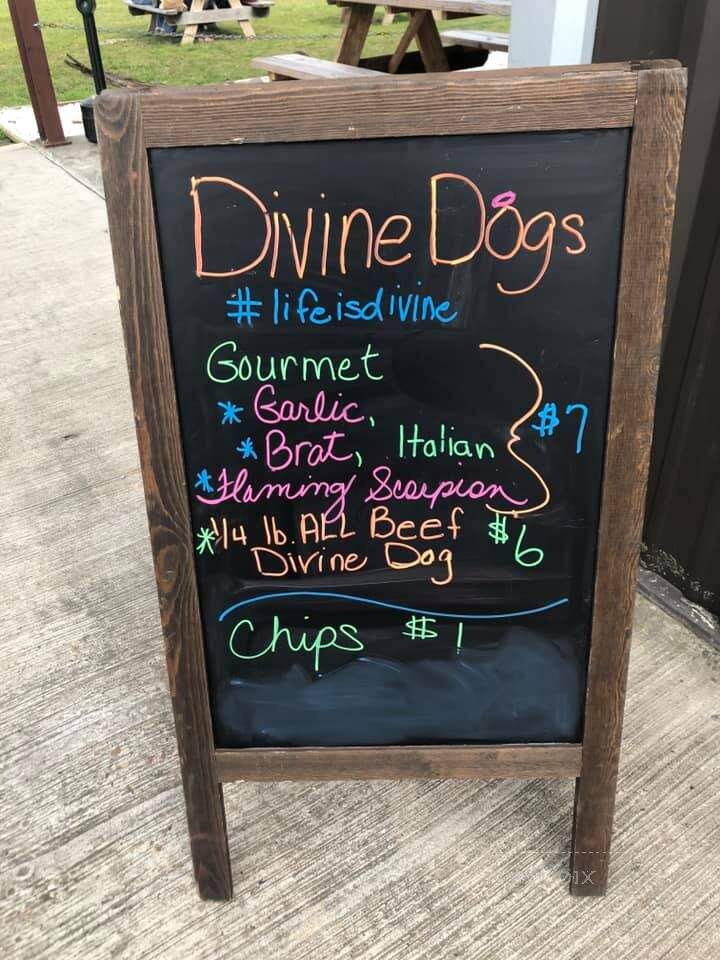 Divine Dogs
#lifeisdivine
Gourmet
* Garlic,
* Brat, Italian
* Flaming Scorpion
$7
* 1/4 lb. ALL Beef $6
Divine Dog
Chips $1